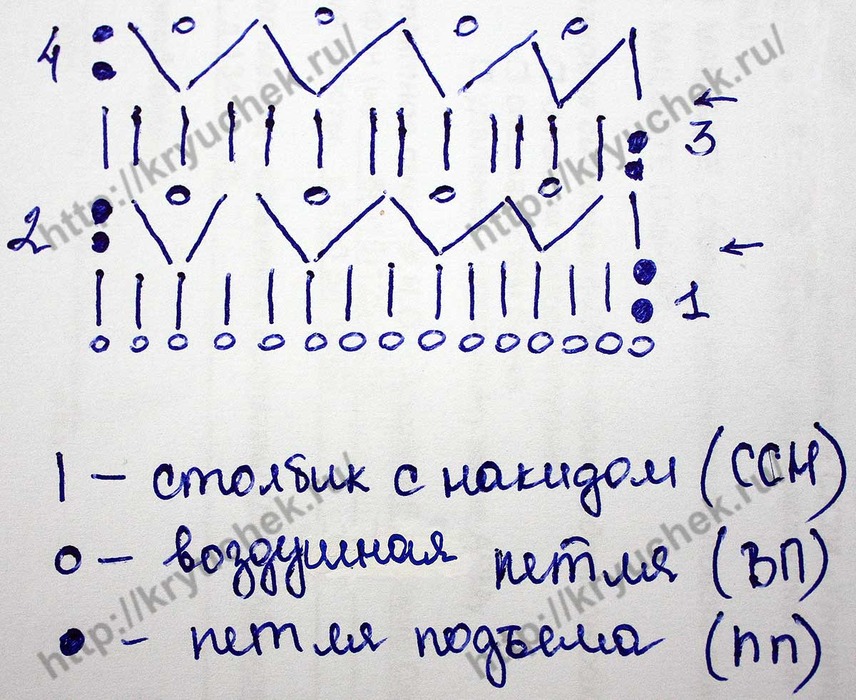 4
3
2
1
| – столбик с накидом (ССН)
о – воздушная петля (ВП)
● – петля подъема (пп)
http://kryuchek.ru/
http://kryuchek.ru/
http://kryuchek.ru/
http://kryuchek.ru/